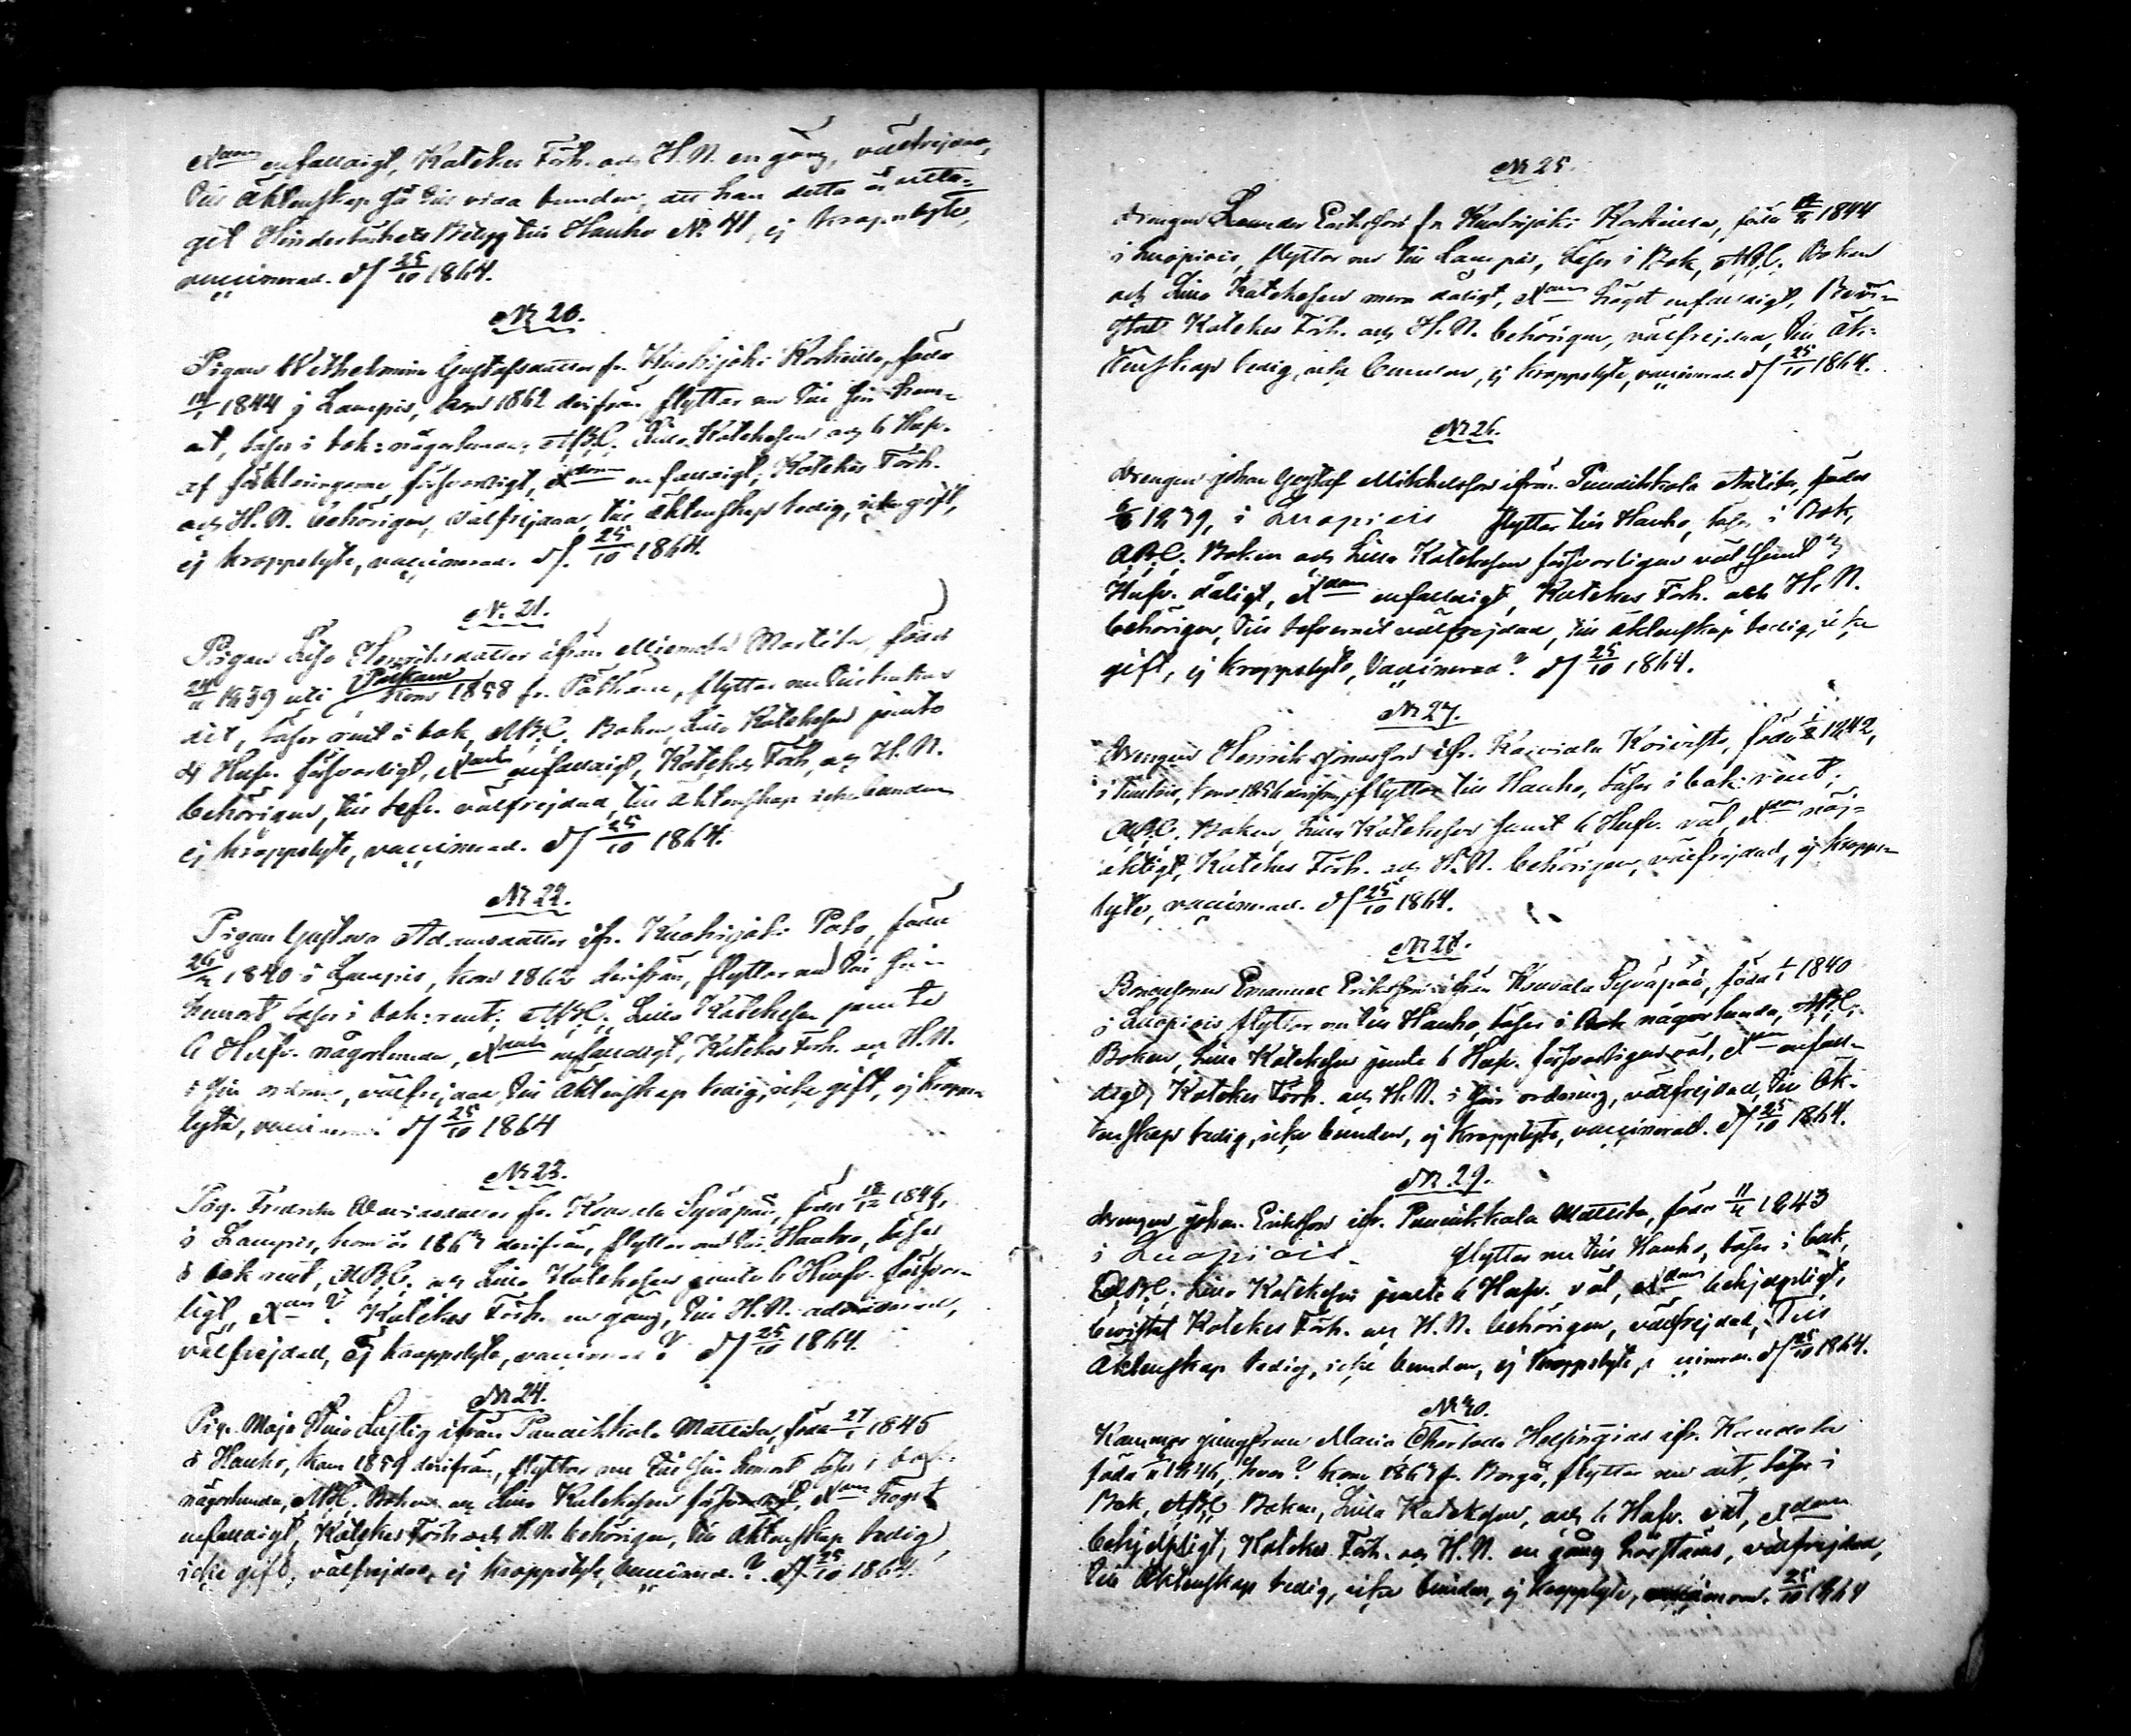 enfaldigt, Kateches Förh. och H. N. en gång, välfrejdad,
till äktenskap så till vida bunden, att han detta år utta-
git Hinderlöshets Betyg till Hauho No 41, ej kroppslyte,
vaccinerad. d/ 25/10 1864.
No 20.
Pigan Wilhelmina Gustafsdotter fr. Kuohijoki Korkeilla, född
14/1 1844 i Lampis, kom 1862 derifrån flyttar nu till sin hem-
ort, läser i bok: någorlunda; ABC. Lilla Katechesen och 6 Hufv.
af förklaringarne försvarligt, enfaldigt, Kateches Förh.
och H. N. behörigen, välfrejdad, till äktenskap ledig, icke gift,
ej kroppslyte, vaccinerad. d/ 25/10 1864.
No 21.
Pigan Lisa Henriksdotter ifrån Mattila, född
24/11 1839 uti Pälkäne kom 1858 fr. Pälkäne, flyttar nu tillbakas
dit, läser rent i bok, ABC. Boken, Lilla Katechesen jemte
4 Hufv. försvarligt, enfaldigt, Kateches Förh. och H. N.
behörigen, till lefv. välfrejdad, till äktenskap icke bunden
ej kroppslyte, vaccinerad. d/ 25/10 1864.
No 22.
Pigan Gustava Adamsdotter ifr. Kuohijoki Palo, född
26/ 1840 i Lampis, kom 1862 derifrån, flyttar nu till sin
hemort läser i bok: rent; ABC. Lilla Katechesen jemte
6 Hufv. någorlunda, enfaldigt, Kateches Förh. och H. N.
i sin ordning, välfrejdad, till äktenskap ledig, icke gift, ej kropps-
lyte, vaccinerad d/ 25/10 1864
No 23.
Pig. Fredrika fr. Syväpää, född 18/12 1846,
i Lampis, kom år 1863 derifrån, flyttar nu till Hauho, läser
i bok rent, ABC. och Lilla Katechesen jemte 6 Hufv. försvar-
ligt, ? Kateches Förh. en gång, till H. N. admitterad,
välfrejdad, Ej kroppslyte, vaccinerad? d/ 25/10 1864.
No 24.
Pig. Maja Stina Lustig ifrån Puutikkala Mattila, född 27/ 1845
i Hauho, kom 1859 derifrån, flyttar nu till sin hemort läser i bok:
någorlunda, ABC. Boken och Lilla Katechesen högst
enfaldigt, Kateches Förh och H. N. behörigen, till äktenskap ledig,
icke gift, välfrejdad, ej kroppslyte, vaccinerad? d/ 25/10 1864.
No 25.
Drengen Leander Eriksson fr Kuohijoki Korkeilla, född 1844
i Luopiois, flyttar nu till Lampis, läser i Bok, ABC. Boken
och Lilla Katechesen mera dåligt, högst enfaldigt, Bevi-
stat Kateches Förh. och H. N. behörigen, välfrejdad, till äk-
tenskap ledig, icke bunden, ej kroppslyte, vaccinerad. d/ 25/10 1864.
No 26.
Drengen Johan Gustaf Mikkelsson ifrån Puutikkala Anttila, född
1839, i Luopiois flyttar till Hauho, läser i Bok,
ABC. Boken och Lilla Katechesen försvarligen väl samt 3
Hufv. dåligt, enfaldigt, Kateches Förh. och H. N.
behörigen, till lefvernet välfrejdad, till äktenskap ledig, icke
gift, ej kroppslyte, Vaccinerad? d/ 25/10 1864.
No 27.
Drengen Henrik Jonasson ifr. Koivisto, född 1842,
i Tuulois, kom 1856 derifrån, flyttar till Hauho, läser i bok: rent;
ABC. Boken, Lilla Katechesen samt 6 Hufv. väl, nöj-
aktigt, Kateches Förh. och H. N. behörigen, välfrejdad, ej kropps-
lyte, vaccinerad. d/ 25/10 1864.
No 28.
Bondesonen Emanuel Eriksson ifrån Syväpää, född 1840
i Luopiois flyttar nu till Hauho, läser i Bok någorlunda, ABC.
Boken, Lilla Katechesen jemte 6 Hufv. försvarligen väl, enfal-
digt, Kateches Förh. och H. N. i sin ordning, välfrejdad, till äk-
tenskap ledig, icke bunden, ej kroppslyte, vaccinerad. d/ 25/10 1864.
No 29.
Drengen Johan Eriksson ifr. Puutikkala Mattila, född 11/ 1843
i Luopiois. flyttar nu till Hauho, läser i bok,
ABC. Lilla Katechesen jemte 6 Hufv. väl, behjelpligt,
bevistat Kateches Förh. och H. N. behörigen, välfrejdad, Till
äktenskap ledig, icke bunden, ej kroppslyte, vaccinerad. d/ 25/10 1864.
No 30.
Kammar jungfrun Maria Charlotta Helsingius ifr.
född 1846, hvar? kom 1863 fr. Borgå, flyttar nu dit, läser i
Bok, ABC Boken, Lilla Katechesen, och 6 Hufv. väl,
behjelpligt, Kateches Förh. och H. N. en gång hörstäds, välfrejdad,
till äktenskap ledig, icke bunden, ej kroppslyte, vaccinerad. 25/10 1864